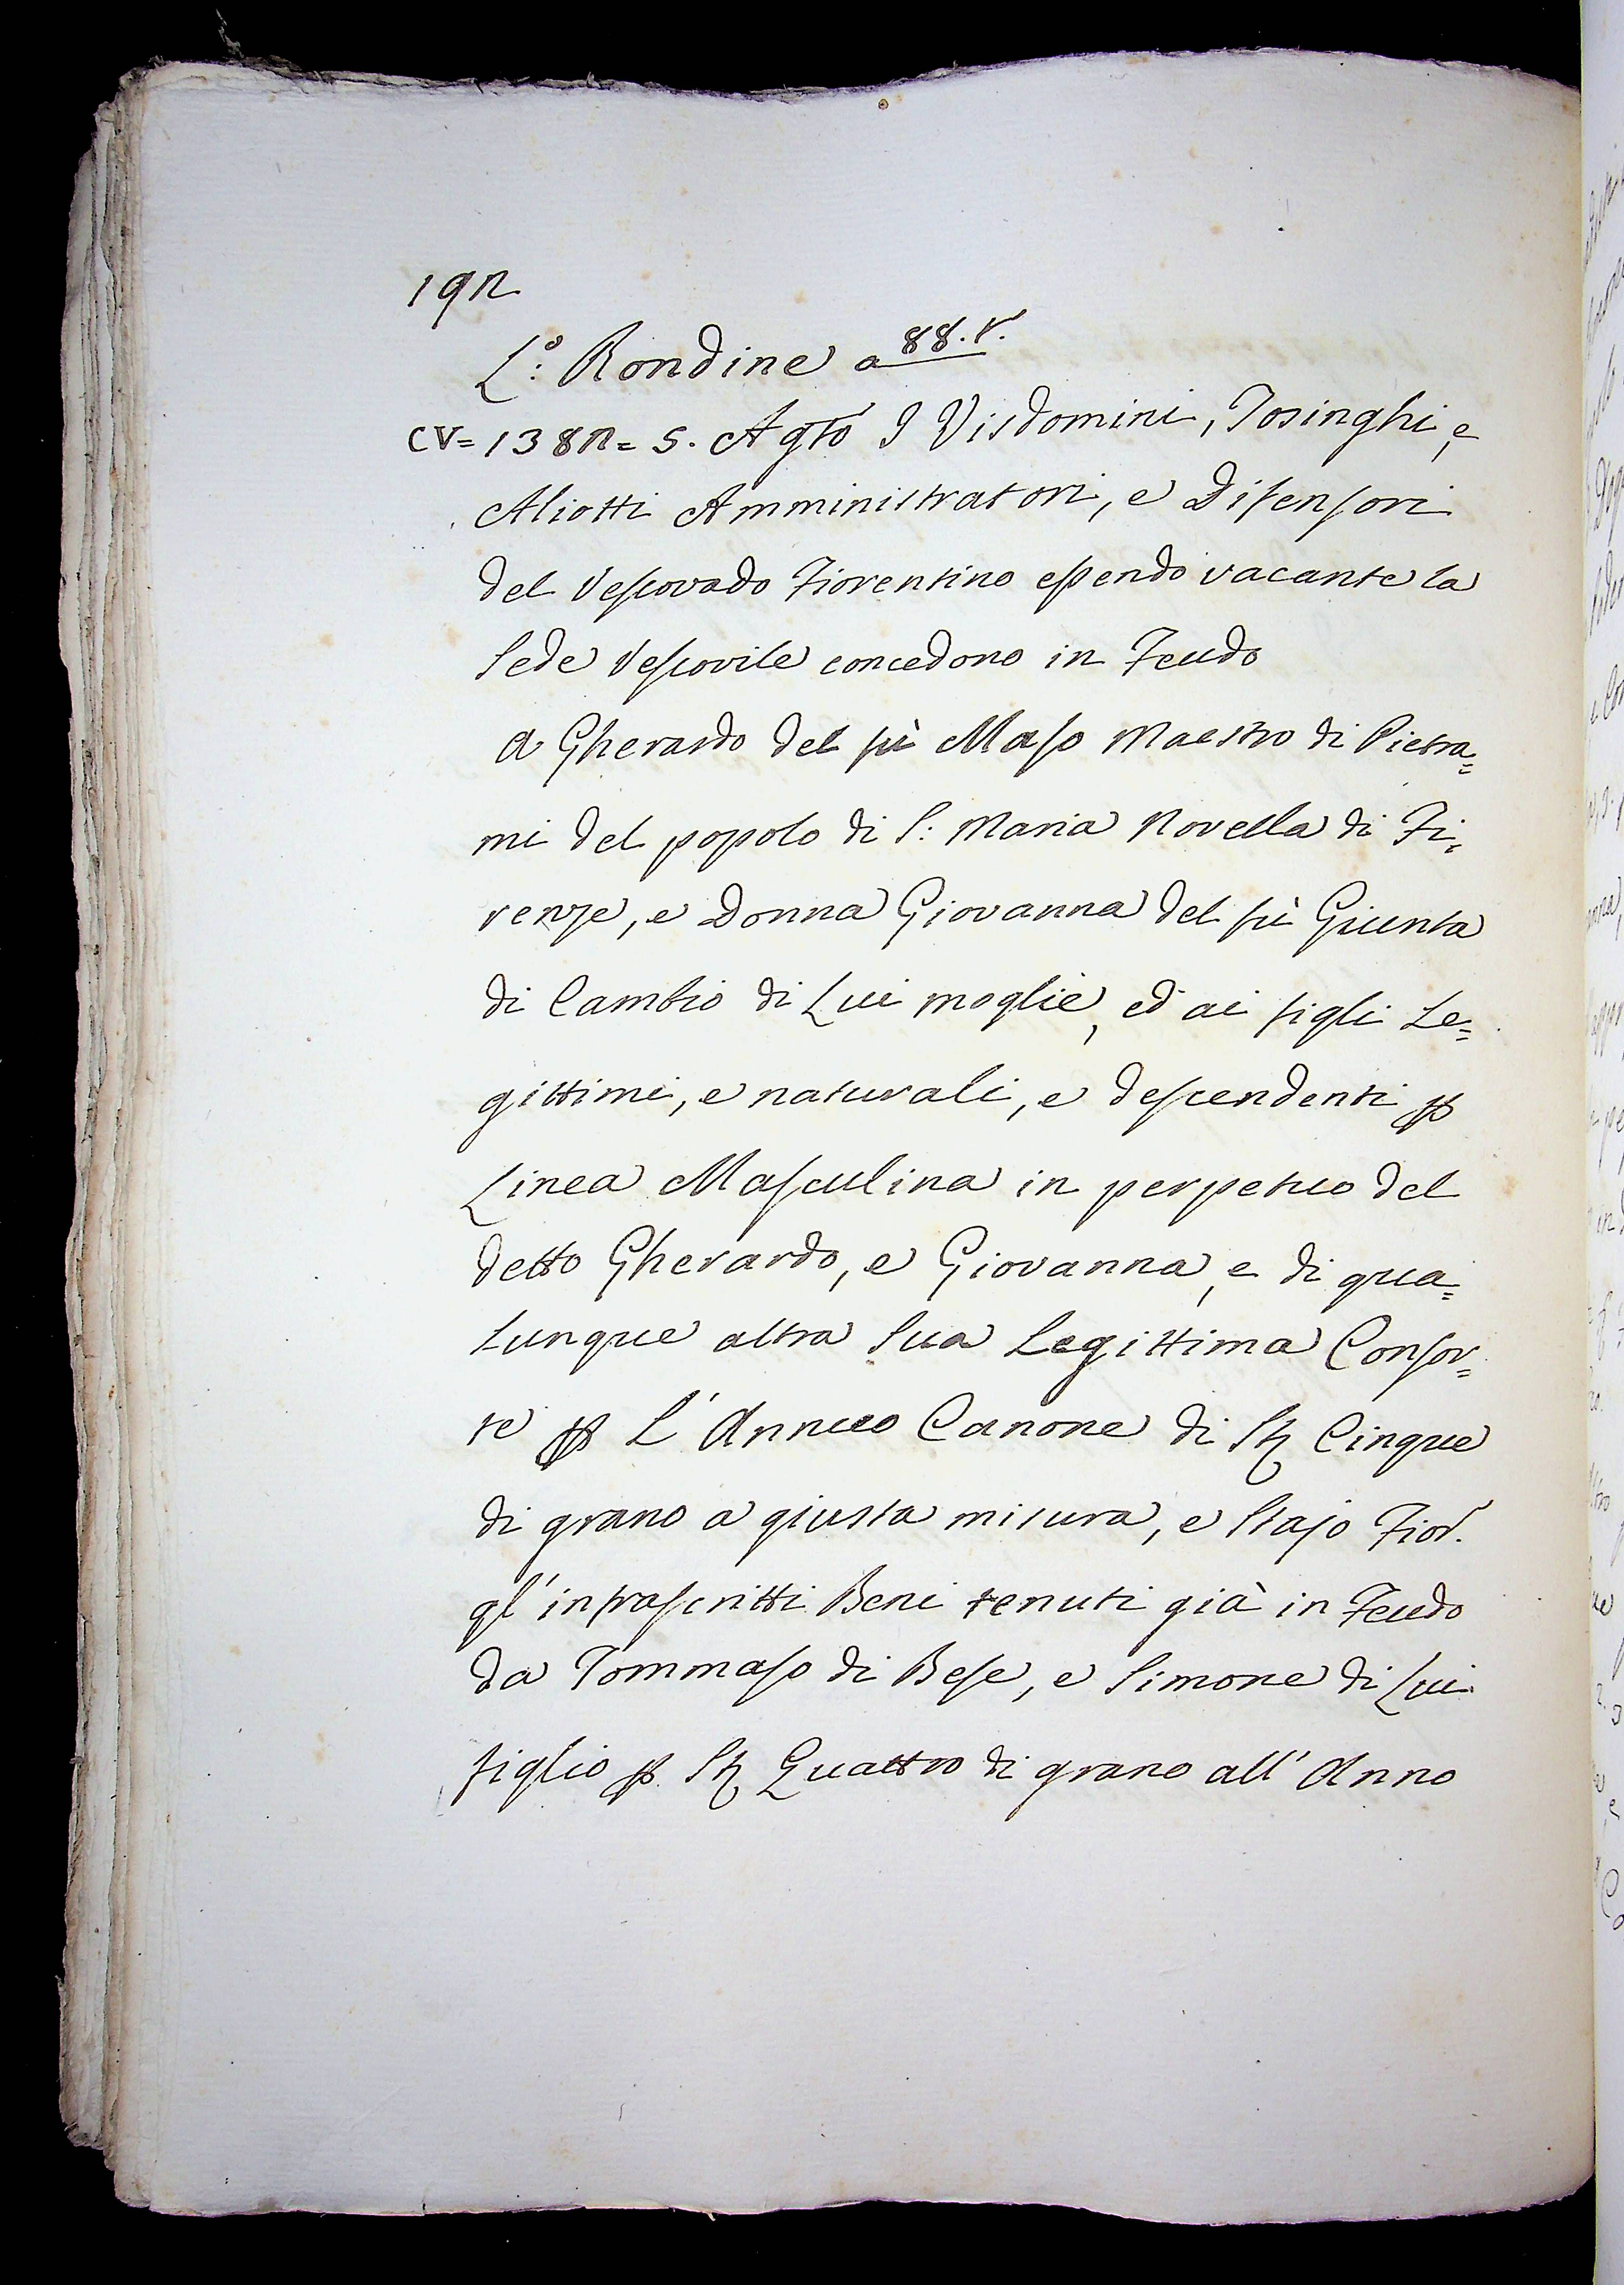 192
L.º Rondine a 88. r.
CV= 1382= 5. Agto I Visdomini, Tosinghi, e
Aliotti Amministratori, e Difensori
del Vescovado Fiorentino essendo vacante la
Sede Vescovile concedono in Feudo
A Gherardo del fù Maso Maestro di Pietra=
mi del popolo di S: Maria Novella di Fi=
renze, e Donna Giovanna del fù Giunta
di Cambio di Lui moglie, ed ai figli Le=
gittimi, e naturali, e descendenti p
Linea Masculina in perpetuo del
detto Gherardo, e Giovanna, e di qua=
lunque altra Sua Legittima Consor=
te p L'Annuo Canone di St Cinque
di grano a giusta misura, e Stajo Fior.
gl'infrascritti Beni tenuti già in Feudo
da Tommaso di Bese, e Simone di Lui
figlio p. St Quattro di grano all'Anno